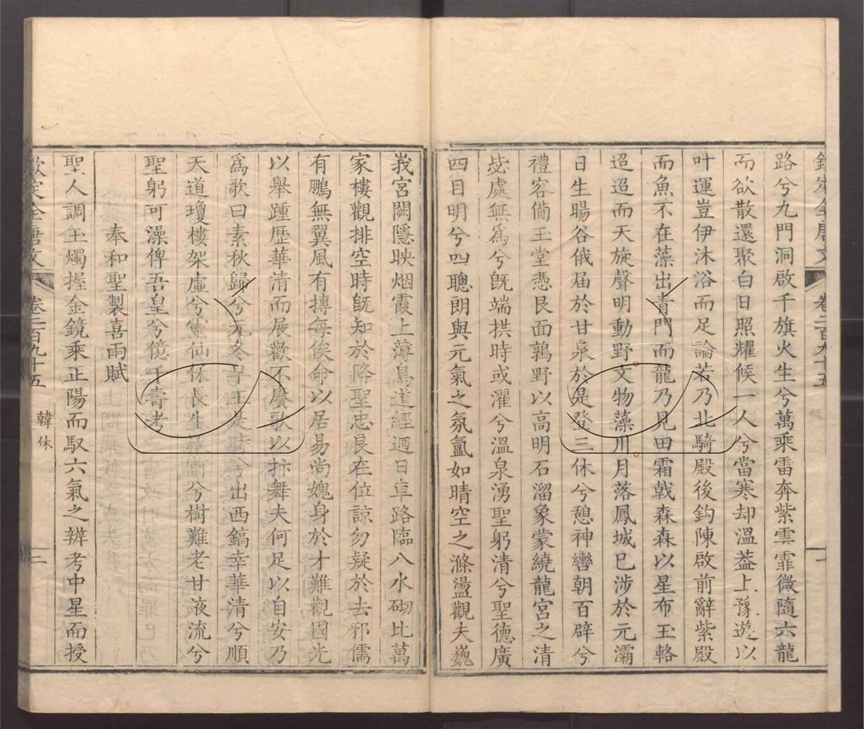 欽定全唐文 卷二百九十五
路兮九門洞啟千旗火生兮萬乘雷奔紫雲霏微隨六龍
而欲散還聚白日照耀候一人兮當寒却溫蓋上豫遊以
叶運豈伊沐浴而足論若乃北騎殿後鈎陳啟前辭紫殿
而魚不在藻出青門而龍乃見田霜戟森森以星布玉輅
迢迢而天旋聲明動野文物藻川月落鳳城已涉於元灞
日生暘谷俄届於甘泉於是登三休兮憩神轡朝百辟兮
禮容備玉堂憑艮面鶉野以高明石溜象蒙繞龍宮之清
毖處無為兮旣端拱時或濯兮溫泉湧聖躬清兮聖德廣
四目明兮四聰朗與元氣之氛氳如晴空之滌盪觀夫巍
峩宮闕隱映烟霞上薄鳥道經迴日車路臨八水砌比萬
家樓觀排空時旣知於降聖忠良在位諒勿疑於去邪儒
有鵬無翼風有摶每俟命以居易尚媿身於才難觀國光
以舉踵歷華清而展歡不賡歌以抃舞夫何足以自安乃
為歌曰素秋歸兮元冬早王是時兮出西鎬幸華清兮順
天道瓊樓架虛兮靈仙保長生殿前兮樹難老甘液流兮
聖躬可澡俾吾皇兮億千壽考
奉和聖製喜雨賦
聖人調玉燭握金鏡乘正陽而馭六氣之辨考中星而授
欽定全唐文 卷二百九十五 韓休 二